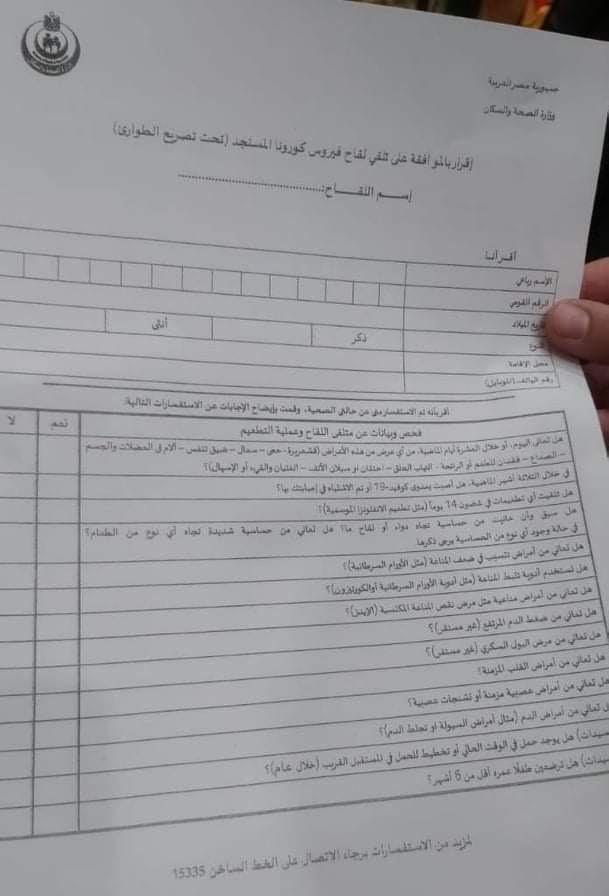 جمهورية مصر العربية
وزارة الصحة والسكان
إقرار بالموافقة على تلقي لقاح فيروس كورونا المستجد (تحت تصريح الطوارئ)
إسم اللقاح:
أقر أنا
الإسم رباعي
الرقم القومي
تاريخ الميلاد
ذكر
أنثى
محل الإقامة
رقم الهاتف (الموبايل)
أقر بأنه تم الاستفسار مني عن حالتي الصحية، وقمت بإيضاح الإجابات عن الاستفسارات التالية:
فحص وبيانات عن متلقي اللقاح وعملية التطعيم
نعم
لا
هل تعاني اليوم، أو خلال العشرة أيام الماضية، من أي عرض من هذه الأمراض (قشعريرة - حمى - سعال - ضيق تنفس - آلام في العضلات والجسم
- الصداع - فقدان للطعم أو الرائحة - التهاب الحلق - احتقان او سيلان الأنف - الغثيان والقيء أو الإسهال)؟
في خلال الثلاثة أشهر الماضية، هل أصبت بعدوى كوفيد-19 أو تم الاشتباه في إصابتك بها؟
هل تلقيت أي تطعيمات في غضون 14 يوماً (مثل تطعيم الانفلونزا الموسمية)؟
هل سبق وأن عانيت من حساسية تجاه دواء أو لقاح ما؟ هل تعاني من حساسية شديدة تجاه أي نوع من الطعام؟
في حالة وجود أي نوع من الحساسية يرجى ذكرها.
هل تعاني من أمراض تتسبب في ضعف المناعة (مثل الأورام السرطانية)؟
هل تستخدم أدوية تثبط المناعة (مثل أدوية الأورام السرطانية أوالكورتيزون)؟
هل تعاني من أمراض مناعية مثل مرض نقص المناعة المكتسبة (الإيدز)؟
هل تعاني من ضغط الدم المرتفع (غير مستقر)؟
هل تعاني من مرض البول السكري (غير مستقر)؟
هل تعاني من أمراض القلب المزمنة؟
هل تعاني من أمراض عصبية مزمنة أو تشنجات عصبية؟
هل تعاني من أمراض الدم (مثال أمراض السيولة او تجلط الدم)؟
هل يوجد حمل في الوقت الحالي أو تخطيط للحمل في المستقبل القريب (خلال عام)؟
هل ترضعين طفلًا عمره أقل من 6 أشهر؟
لمزيد من الاستفسارات برجاء الاتصال على الخط الساخن 15335